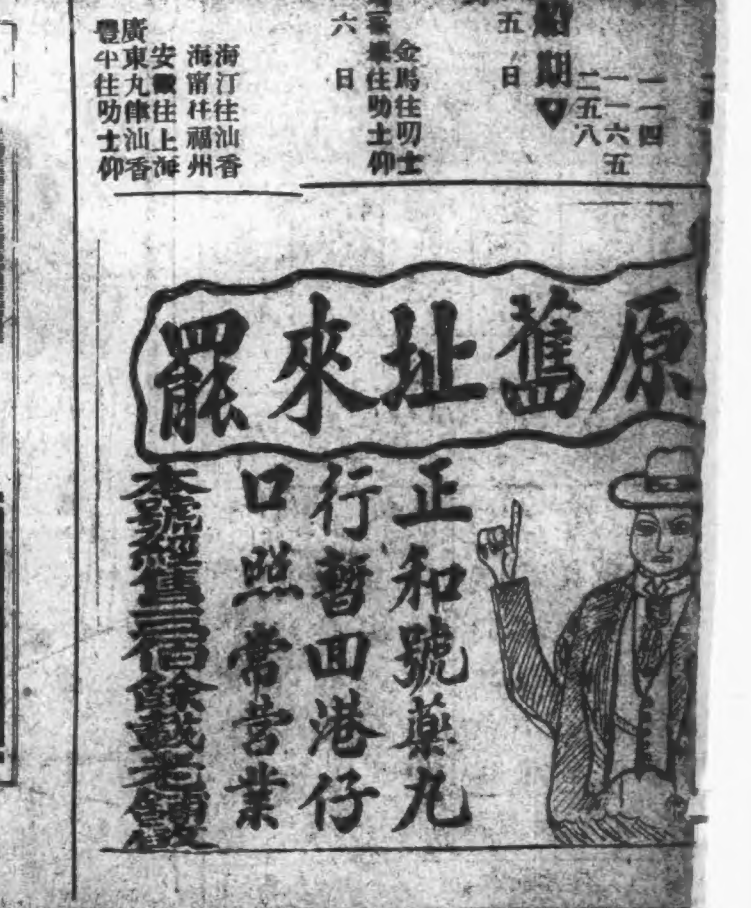 一一四
一一六五
二五八
船期
五日
金馬往叻士
往叻士仰
六日
海汀往汕香
海甯往福州
安徽往上海
廣東九律汕香
豐平往叻士仰
原舊址來罷
正和號藥丸
行暫回港仔
口照常営業
本號經售三
餘載老舖